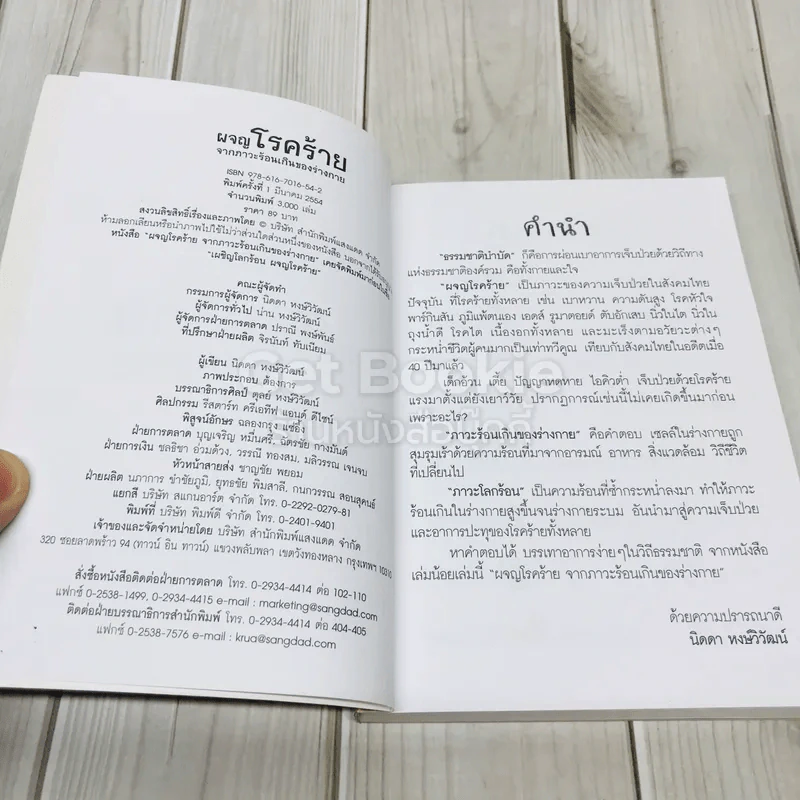 ผจญโรคร้าย
จากภาวะร้อนเกินของร่างกาย
ISBN 978-616-7016-54-2
พิมพ์ครั้งที่ 1 มีนาคม 2554
จำนวนพิมพ์ 3,000 เล่ม
ราคา 89 บาท
สงวนลิขสิทธิ์เรื่องและภาพโดย © บริษัท สำนักพิมพ์แสงแดด จำกัด
ห้ามลอกเลียนหรือนำภาพไปใช้ไม่ว่าส่วนใดส่วนหนึ่งของหนังสือ นอกจากได้รับ
หนังสือ "ผจญโรคร้าย จากภาวะร้อนเกินของร่างกาย" เคยจัดพิมพ์มาก่อนใน
"เผชิญโลกร้อน ผจญโรคร้าย"
คณะผู้จัดทำ
กรรมการผู้จัดการ นิดดา หงษ์วิวัฒน์
ผู้จัดการทั่วไป น่าน หงษ์วิวัฒน์
ผู้จัดการฝ่ายการตลาด ปราณี พงษ์พันธ์
ที่ปรึกษาฝ่ายผลิต จิรนันท์ ทับเนียม
ผู้เขียน นิดดา หงษ์วิวัฒน์
ภาพประกอบ ต้องการ
บรรณาธิการศิลป์ ตุลย์ หงษ์วิวัฒน์
ศิลปกรรม รีสตาร์ท ครีเอทีฟ แอนด์ ดีไซน์
พิสูจน์อักษร ฉลองกรุง แซ่อึ้ง
ฝ่ายการตลาด บุญเจริญ หมื่นศรี, ฉัตรชัย กางมันต์
ฝ่ายการเงิน ชลธิชา อ่วมด้วง, วรรณี ทองสม, มลิวรรณ เจนจบ
หัวหน้าสายส่ง ชาญชัย พยอม
ฝ่ายผลิต นภาการ ขำชัยภูมิ, ยุทธชัย พิมสาลี, กนกวรรณ สอนสุคนธ์
แยกสี บริษัท สแกนอาร์ต จำกัด โทร. 0-2292-0279-81
พิมพ์ที่ บริษัท พิมพ์ดี จำกัด โทร. 0-2401-9401
เจ้าของและจัดจำหน่ายโดย บริษัท สำนักพิมพ์แสงแดด จำกัด
320 ซอยลาดพร้าว 94 (ทาวน์ อิน ทาวน์) แขวงพลับพลา เขตวังทองหลาง กรุงเทพฯ 10310
สั่งซื้อหนังสือติดต่อฝ่ายการตลาด โทร. 0-2934-4414 ต่อ 102-110
แฟกซ์ 0-2538-1499, 0-2934-4415 e-mail : marketing@sangdad.com
ติดต่อฝ่ายบรรณาธิการสำนักพิมพ์ โทร. 0-2934-4414 ต่อ 404-405
แฟกซ์ 0-2538-7576 e-mail : krua@sangdad.com
คำนำ
"ธรรมชาติบำบัด" ก็คือการผ่อนเบาอาการเจ็บป่วยด้วยวิถีทาง
แห่งธรรมชาติองค์รวม คือทั้งกายและใจ
"ผจญโรคร้าย" เป็นภาวะของความเจ็บป่วยในสังคมไทย
ปัจจุบัน ที่โรคร้ายทั้งหลาย เช่น เบาหวาน ความดันสูง โรคหัวใจ
พาร์กินสัน ภูมิแพ้ตนเอง เอดส์ รูมาตอยด์ ตับอักเสบ นิ่วในไต นิ่วใน
ถุงน้ำดี โรคไต เนื้องอกทั้งหลาย และมะเร็งตามอวัยวะต่างๆ
กระหน่ำชีวิตผู้คนมากเป็นเท่าทวีคูณ เทียบกับสังคมไทยในอดีตเมื่อ
40 ปีมาแล้ว
เด็กอ้วน เตี้ย ปัญญาหดหาย ไอคิวต่ำ เจ็บป่วยด้วยโรคร้าย
แรงมาตั้งแต่ยังเยาว์วัย ปรากฏการณ์เช่นนี้ไม่เคยเกิดขึ้นมาก่อน
เพราะอะไร?
"ภาวะร้อนเกินของร่างกาย" คือคำตอบ เซลล์ในร่างกายถูก
สุมรุมเร้าด้วยความร้อนที่มาจากอารมณ์ อาหาร สิ่งแวดล้อม วิถีชีวิต
ที่เปลี่ยนไป
"ภาวะโลกร้อน" เป็นความร้อนที่ซ้ำกระหน่ำลงมา ทำให้ภาวะ
ร้อนเกินในร่างกายสูงขึ้นจนร่างกายระบม อันนำมาสู่ความเจ็บป่วย
และอาการปะทุของโรคร้ายทั้งหลาย
หาคำตอบได้ บรรเทาอาการง่ายๆในวิถีธรรมชาติ จากหนังสือ
เล่มน้อยเล่มนี้ "ผจญโรคร้าย จากภาวะร้อนเกินของร่างกาย"
ด้วยความปรารถนาดี
นิดดา หงษ์วิวัฒน์
Get Bookie